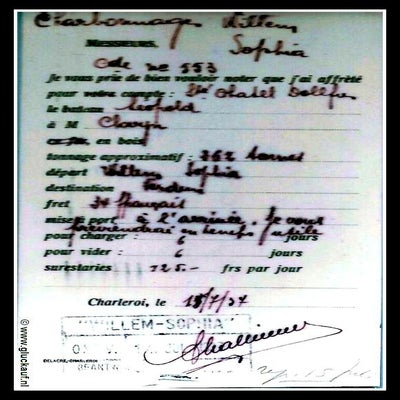 Charbonnages Willem
MESSIEURS, Sophia
Ode no 553
Je vous prie de bien vouloir noter que j'ai affrété
pour votre compte : Sté Chatel Dollfus
le bateau Léopold
à M
en bois
tonnage approximatif : 362 tonnes
départ Willem Sophia
destination
fret 34 français
mise à port à l'arrivée. Je vous
préviendrai en temps utile
pour charger : 6 jours
pour vider : 6 jours
surestaries 125.- frs par jour
Charleroi, le 15/7/37
WILLEM-SOPHIA
DELACRE, CHARLEROI
rep. 15/
©www.gluckauf.nl